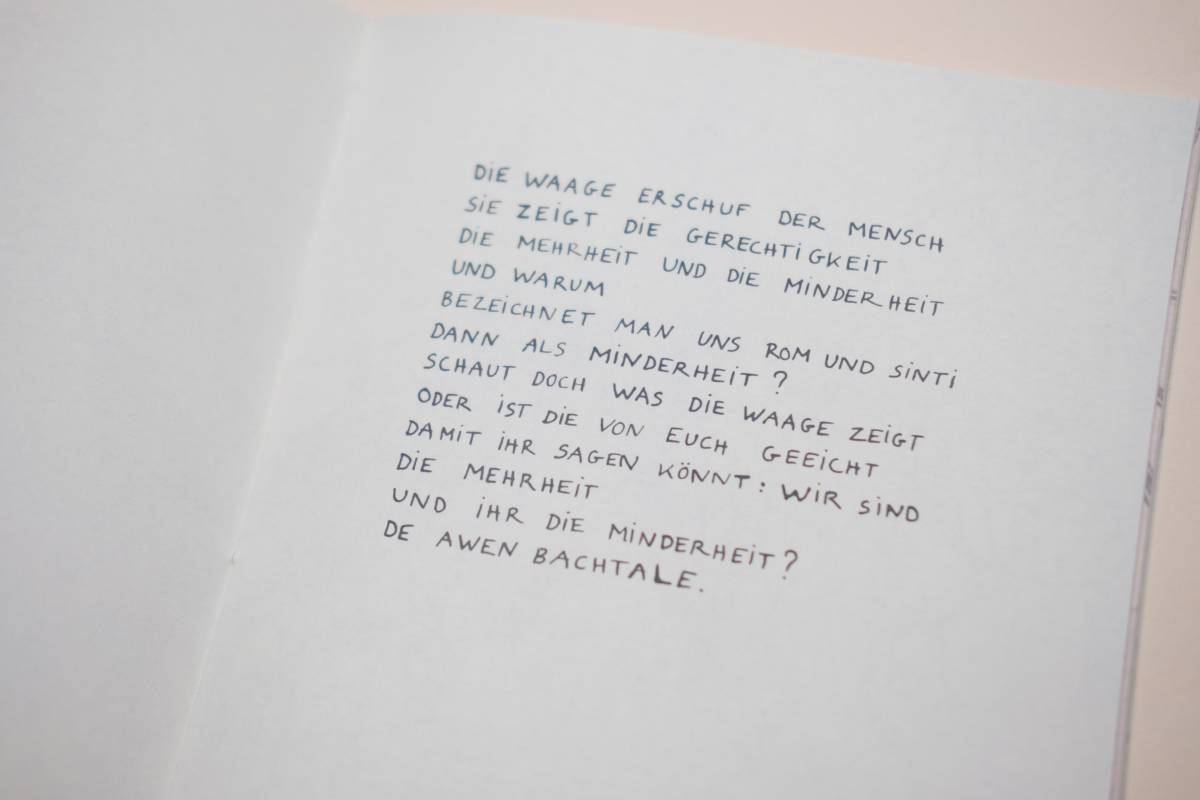 DiE WAAGE ERSCHUF DER MENSCH
SiE ZEiGT DiE GERECHTiGKEiT
DiE MEHRHEiT UND DiE MiNDERHEiT
UND WARUM
BEZEiCHNET MAN UNS ROM UND SiNTi
DANN ALS MiNDERHEiT?
SCHAUT DOCH WAS DiE WAAGE ZEiGT
ODER iST DiE VON EUCH GEEiCHT
DAMiT iHR SAGEN KÖNNT: WiR SiND
DiE MEHRHEiT
UND iHR DiE MiNDERHEiT?
DE AWEN BACHTALE.